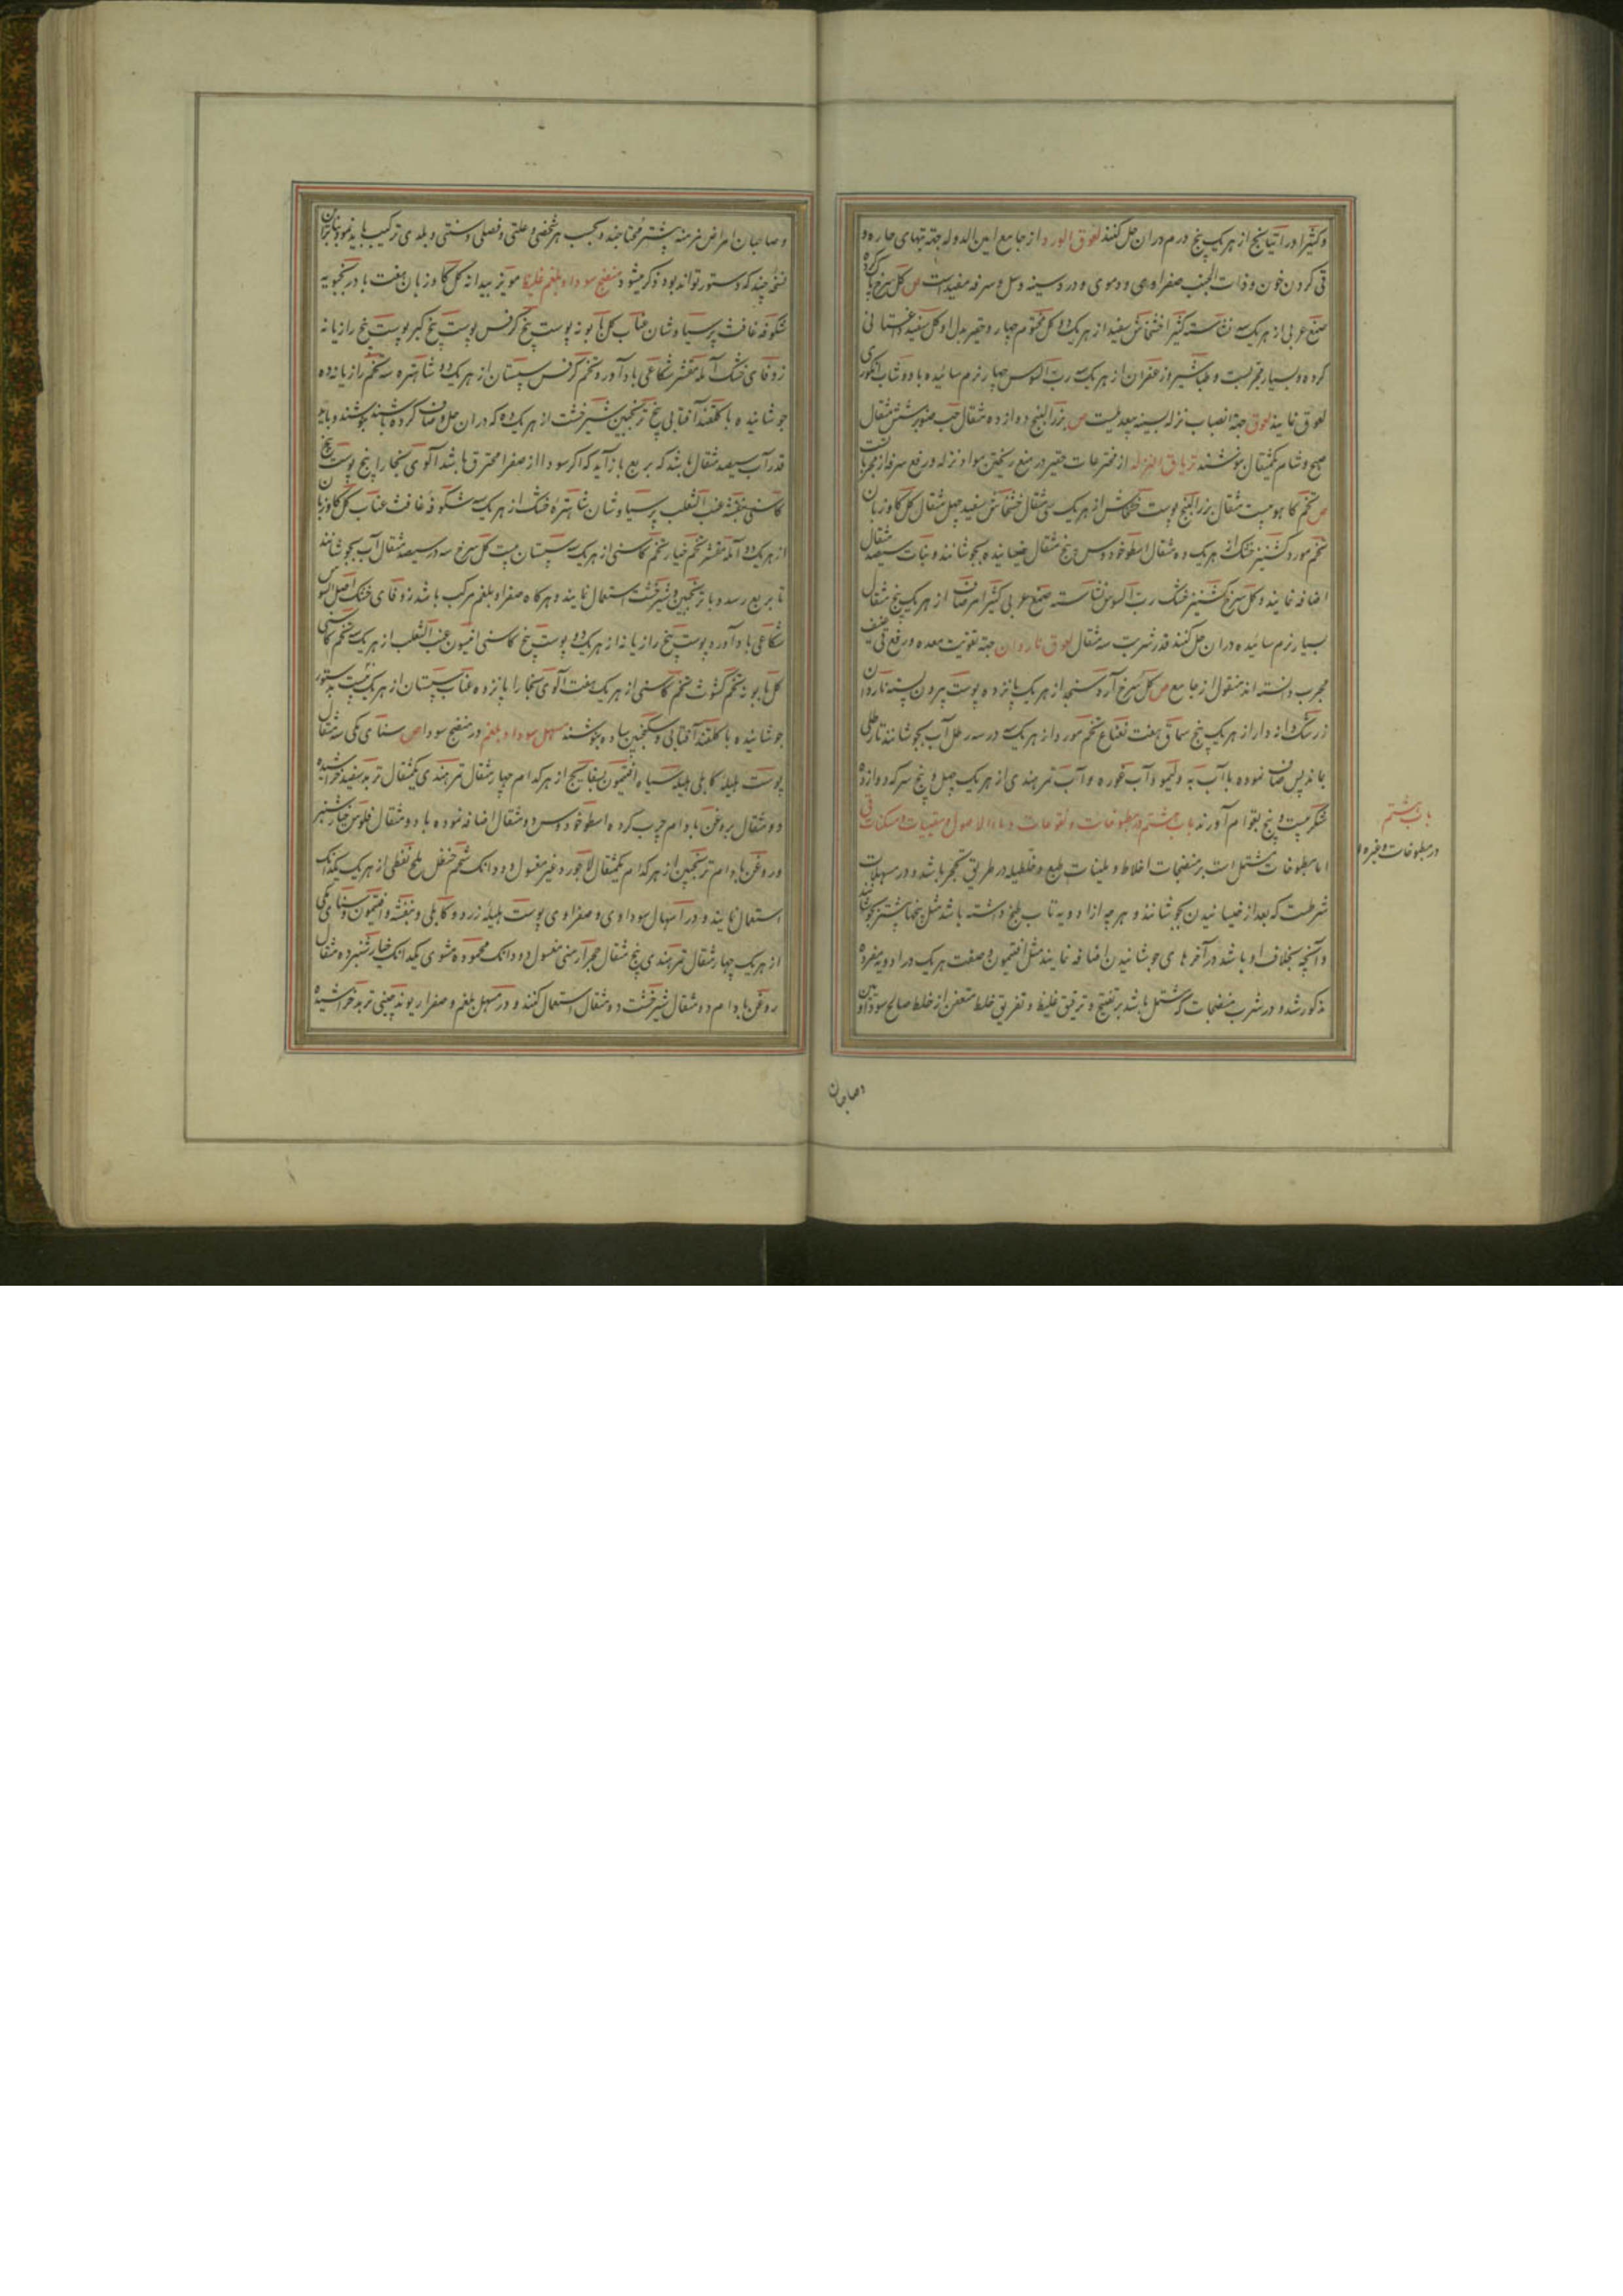 و کثیرا و راتیانج از هر یک پنج درم در ان حل کنند لعوق الورد از جامع امین الدوله جهة تبهای حاره و
قی کردن خون و ذات الجنب صفراوی و دموی و درد سینه و سل و سرفه مفید است ص کل سرخ پاک کرده
صمغ عربی از هر یک سه نشاسته کثیرا خشخاش سفید از هر یک ده کل مختوم چهار و حقیر بدل او کل سفید داغستانی
کرده و بسیار مجربست و طباشیر و زعفران از هر یک سه رب السوس چهار نرم سائیده با دوشاب انکوری
لعوق نمایند لعوق جهة انصباب نزله بسینه بیعدیلست ص بزرالبنج دوازده مثقال حب صنوبر شش مثقال
صبح و شام یکمثقال بنوشند تریاق النزله از مخترعات حقیر در منع ریختن مواد نزله و رفع سرفه از مجربات
ص تخم کاهو بیست مثقال بزرالبنج پوست خشخاش از هر یک سی مثقال خشخاش سفید چهل مثقال کل کاوزبان
تخم مورد کشنیز خشک از هر یک ده مثقال اسطوخودوس پنج مثقال خیسانیده بجوشانند و نبات سیصد مثقال
اضافه نمایند و کل سرخ کشنیز خشک رب السوس نشاسته صمغ عربی کثیرا مرصاف از هر یک پنج مثقال
بسیار نرم سائیده در ان حل کنند قدر شربت سه مثقال لعوق ناردان جهة تقویت معده و رفع قی عنیف
مجرب دانسته اند منقول از جامع ص کل سرخ آرد سنجد از هر یک پانزده پوست بیرون پسته ناردان
زرشک دانه دار از هر یک پنج سماق هفت نعناع تخم مورد از هر یک سه در سه رطل آب بجوشانند تا رطلی
بماند پس صاف نموده با آب به و لیمو و آب غوره و آب تمر هندی از هر یک چهل و پنج سرکه دوازده
شکر بیست و پنج بقوام آورند باب هشتم در مطبوخات و نقوعات و ماء الاصول و مقییات و مسکنات قی
اما مطبوخات مشتمل است بر منضجات اخلاط و ملینات طبع و محللیله در طریق تحجر باشد و در مسهلات
شرطست که بعد از خیسانیدن بجوشانند و هر چه از ادویه تاب طبخ داشته باشد مثل بیخها پیشتر بجوشانند
و آنچه بخلاف او باشد در آخرهای جوشانیدن اضافه نمایند مثل افتیمون و صفت هر یک در ادویه مفرده
مذکور شد و در شرب منضجات که مشتمل باشد بر تفتیح و ترقیق غلیظ و تفریق خلط متعفن از خلط صالح سوداویین
باب هشتم
در مطبوخات و غیره
و صاحبان
و صاحبان امراض مزمنه بیشتر محتاجند و بحسب هر شخصی و علتی و فصلی و سنی و بلدی ترکیب باید نمود بنابران
نسخهٔ چند که دستور تواند بود ذکر میشود منضج سودا و بلغم غلیظ مویز بیدانه کل کاوزبان هفت بادرنجبویه
شکوفه غافث پرسیاوشان عناب کل بابونه پوست بیخ کرفس پوست بیخ کبر پوست بیخ رازیانه
زوفای خشک آمله مقشر شکاعی باد آورد تخم کرفس سپستان از هر یک ده شاهتره سه تخم رازیانه ده
جوشانیده با کلقند آفتابی پنج ترنجبین شیرخشت از هر یک ده که در ان حل و صاف کرده باشند بنوشند و باید
قدر آب سیصد مثقال باشد که بربع باز آید که اکر سودا از صفرا محترق باشد آلوی بخارا پنج پوست بیخ
کاسنی بنفشه عنب الثعلب پرسیاوشان شاهترهٔ خشک از هر یک سه شکوفه غافث عناب کل کاوزبان
از هر یک ده آمله مقشر تخم خیار تخم کاسنی از هر یک سه سپستان بیست کل سرخ سه در سیصد مثقال آب بجوشانند
تا بربع رسد و با ترنجبین و شیرخشت استعمال نمایند و هرکاه صفرا و بلغم مرکب باشد زوفای خشک اصل السوس
شکاعی باد آورد پوست بیخ رازیانه از هر یک ده پوست بیخ کاسنی افتیمون عنب الثعلب از هر یک سه تخم کاسنی
کل بابونه تخم کشوث تخم کاسنی از هر یک هفت آلوی بخارا پانزده عناب سپستان از هر یک بیست بدستور
جوشانیده با کلقند آفتابی و سکنجبین ساده بنوشند مسهل سودا و بلغم در منضج سودا ص سنای مکی سه مثقال
پوست هلیلهٔ کابلی هلیلهٔ سیاه افتیمون بسفایج از هر کدام چهار مثقال تمر هندی یکمثقال تربد سفید خراشیده
دو مثقال بروغن بادام چرب کرده اسطوخودوس دو مثقال اضافه نموده با دو مثقال فلوس خیارشنبر
و روغن بادام ترنجبین از هر کدام یکمثقال لاجورد غیر مغسول دو دانک شحم حنظل ملح نفطی از هر یک یکدانک
استعمال نمایند و در اسهال سوداوی و صفراوی پوست هلیلهٔ زرد و کابلی و بنفشه و افتیمون و سنای مکی
از هر یک چهار مثقال تمر هندی پنج مثقال حجر ارمنی مغسول دو دانک محموده مشوی یکدانک خیارشنبر ده مثقال
روغن بادام دو مثقال شیرخشت ده مثقال استعمال کنند و در مسهل بلغم و صفرا ریوند چینی تربد خراشیده